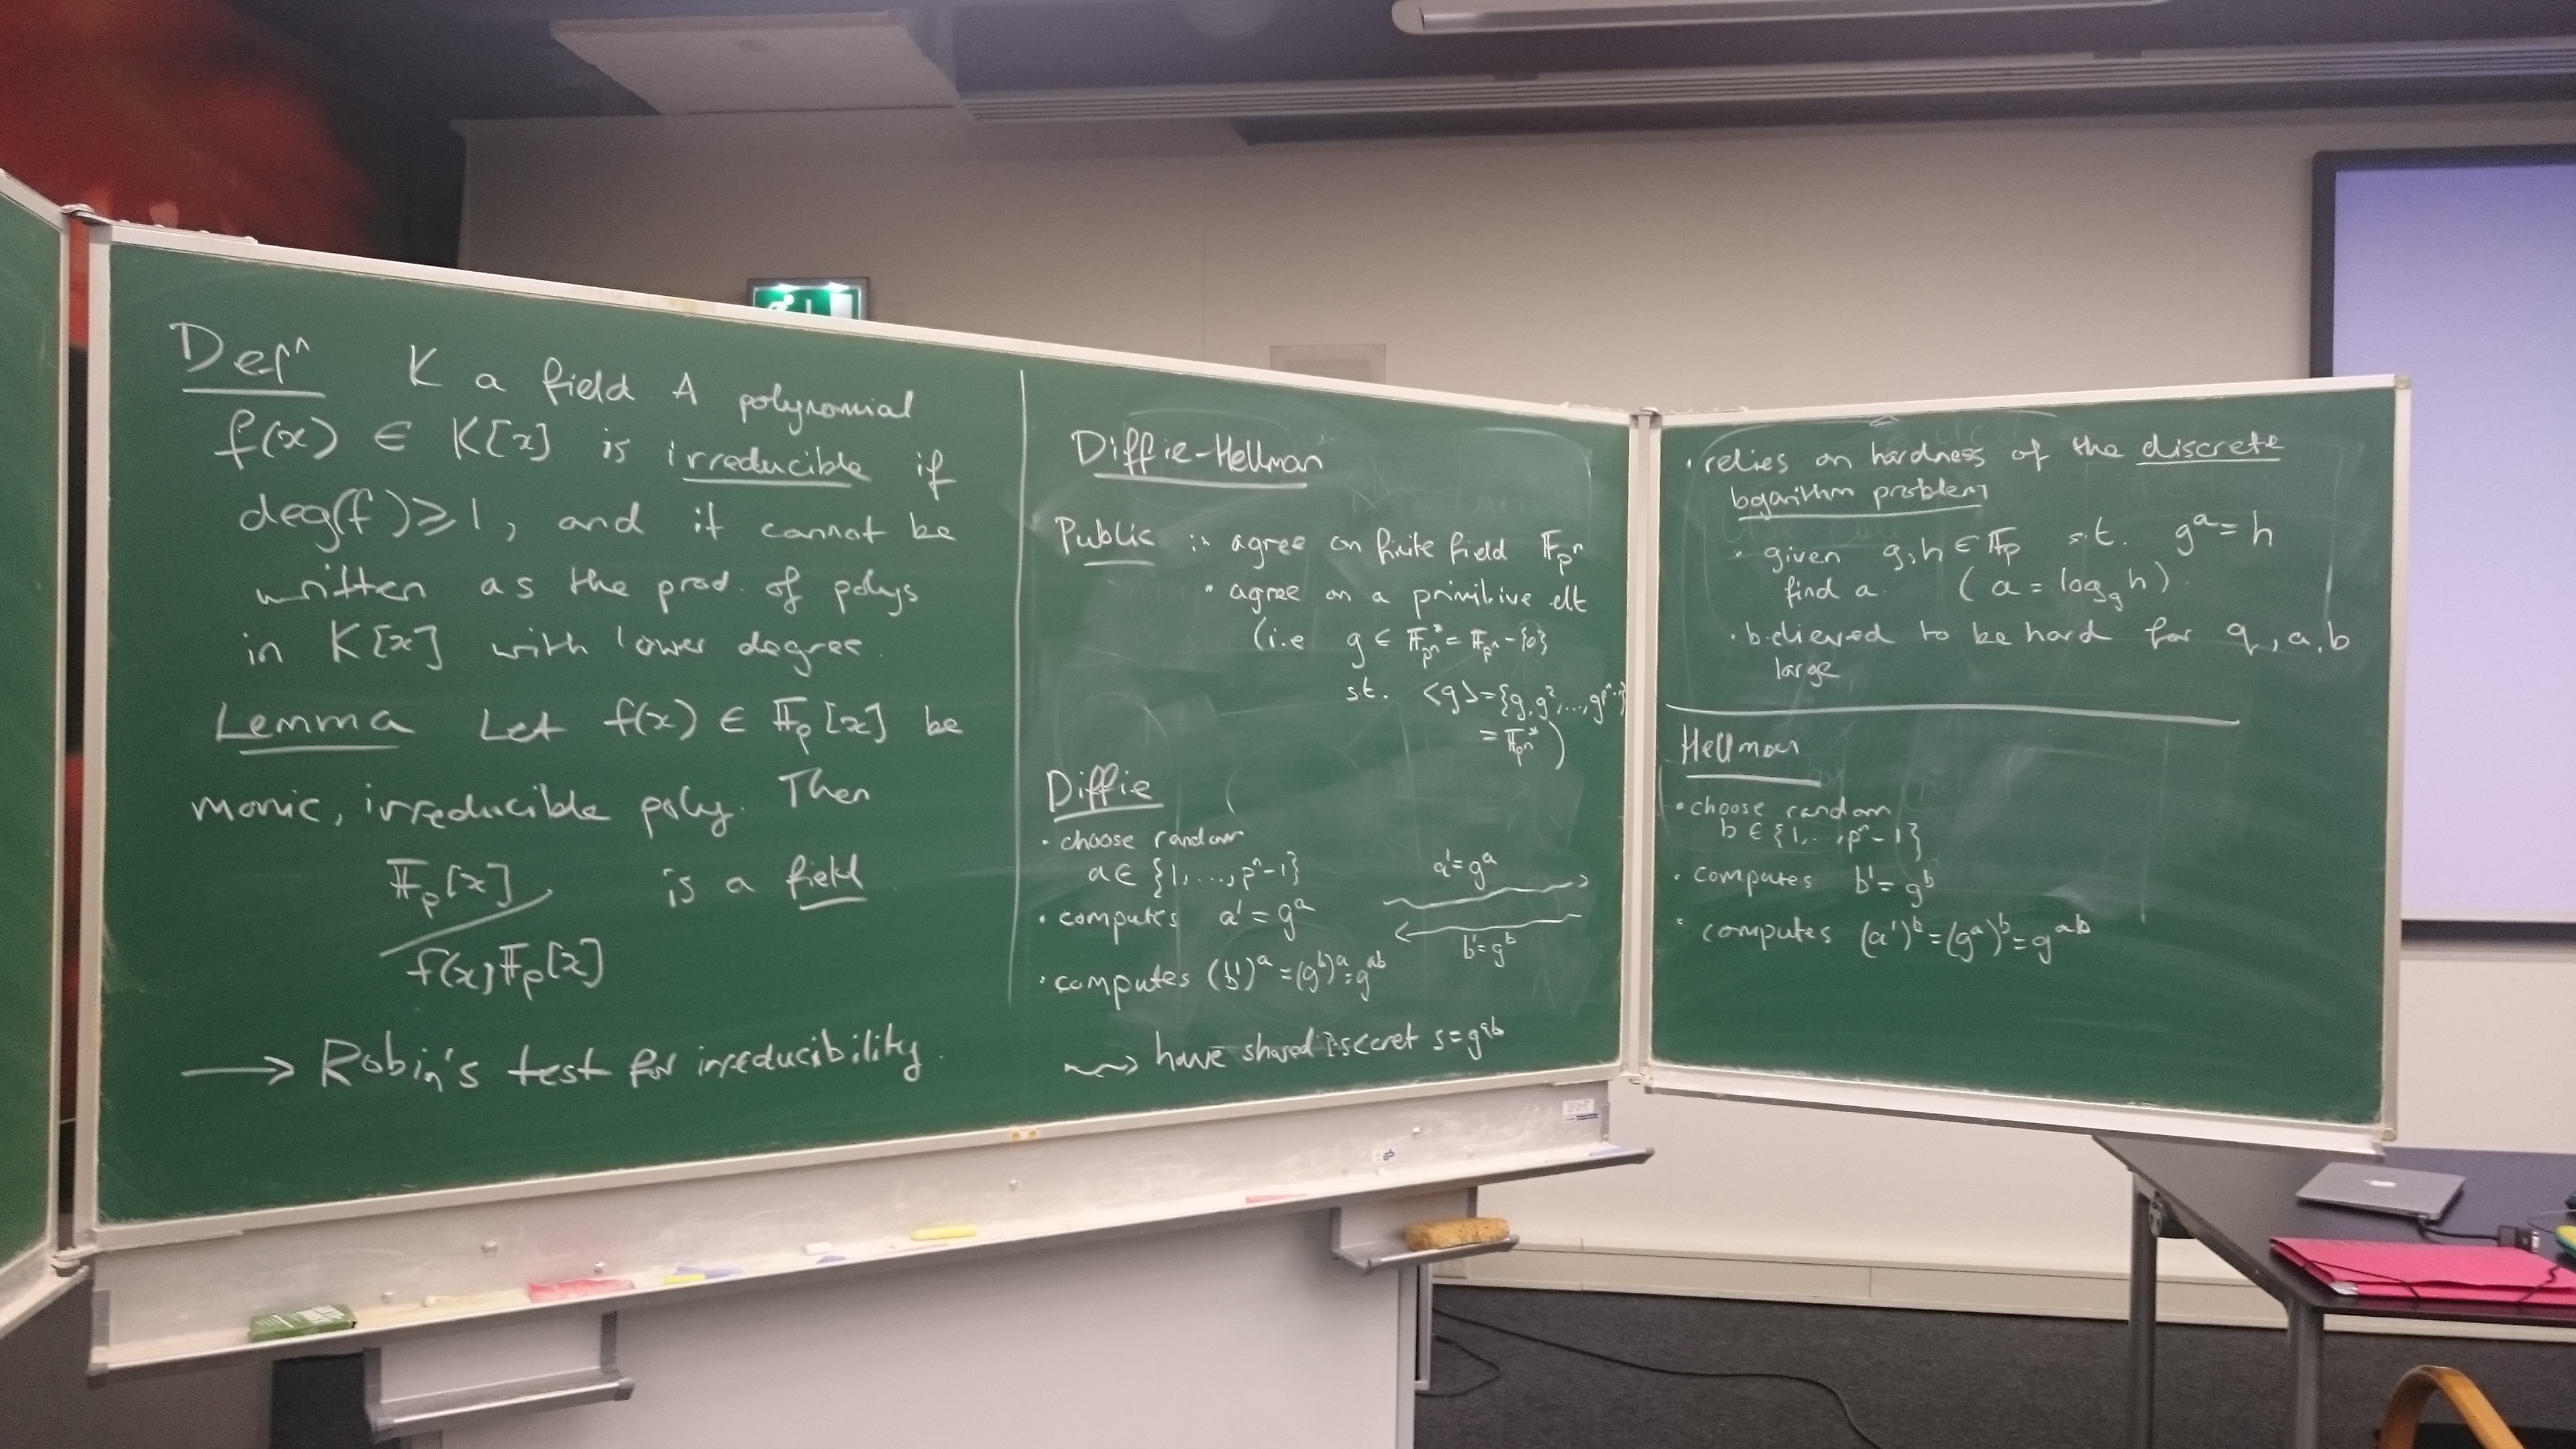 Defⁿ K a field A polynomial
f(x) ∈ K[x] is irreducible if
deg(f) ⩾ 1, and it cannot be
written as the prod. of polys
in K[x] with lower degree.
Lemma Let f(x) ∈ 𝔽_p[x] be
monic, irreducible poly. Then
𝔽_p[x] / f(x)𝔽_p[x] is a field
⟶ Robin's test for irreducibility.
Diffie-Hellman
Public : • agree on finite field 𝔽_pⁿ
• agree on a primitive elt
(i.e g ∈ 𝔽_pⁿ* = 𝔽_pⁿ - {0}
s.t. <g> = {g, g², ..., g^(pⁿ-1)}
= 𝔽_pⁿ*)
Diffie
• choose random
a ∈ {1, ..., pⁿ-1}
• computes a' = g^a
a' = g^a
b' = g^b
• computes (b')^a = (g^b)^a = g^ab
⇝ have shared secret s = g^ab
• relies on hardness of the discrete
logarithm problem
• given g, h ∈ 𝔽_p s.t. g^a = h
find a. (a = log_g h).
• believed to be hard for q, a, b
large
Hellman
• choose random
b ∈ {1, ..., pⁿ-1}
• computes b' = g^b
• computes (a')^b = (g^a)^b = g^ab